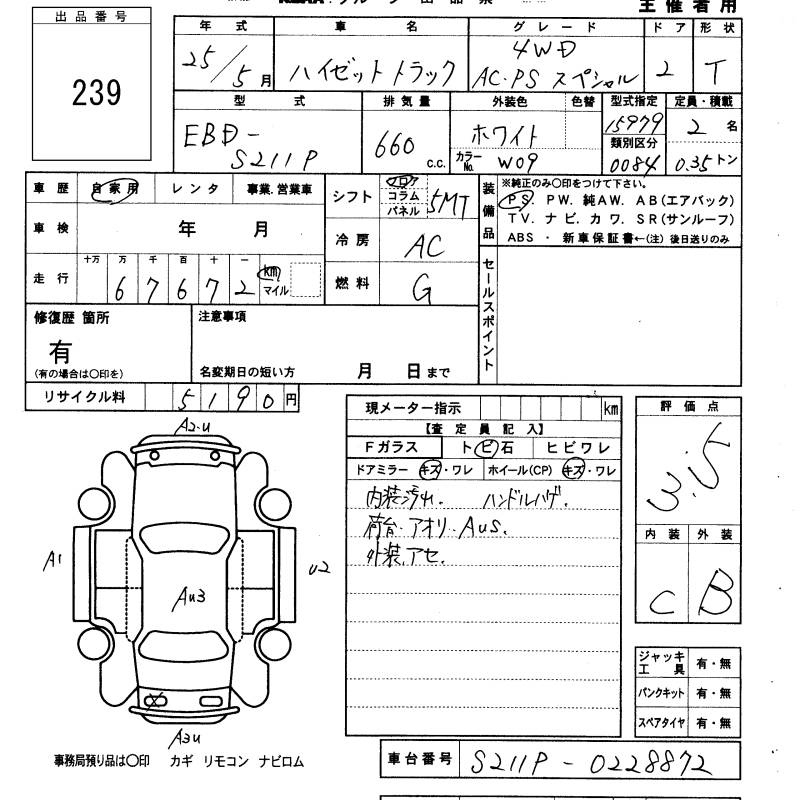 主催者用
出品番号
239
年式
25/5月
車名
ハイゼットトラック
グレード
4WD
AC.PS スペシャル
ドア
2
形状
T
型式
EBD-
S211P
排気量
660 c.c.
外装色
ホワイト
カラーNo. W09
色替
型式指定
15979
類別区分
0084
定員・積載
2名
0.35トン
車歴 自家用 レンタ 事業.営業車
車検 年 月
走行 十万 万 千 百 十 一
6 7 6 7 2 km
マイル
シフト フロア
コラム
パネル
5MT
冷房 AC
燃料 G
装備品
※純正のみ○印をつけて下さい。
PS. PW. 純AW. AB(エアバック)
TV. ナビ. カワ. SR(サンルーフ)
ABS ・ 新車保証書←(注) 後日送りのみ
セールスポイント
修復歴 箇所
有
(有の場合は○印を)
注意事項
名変期日の短い方 月 日まで
リサイクル料 5190円
現メーター指示 km
【査定員記入】
Fガラス トビ石 ヒビワレ
ドアミラー キズ・ワレ ホイール(CP) キズ・ワレ
内装汚れ. ハンドルハゲ.
荷台.アオリ..AuS.
外装.アセ.
評価点
3.5
内装 外装
C B
A2-U
A1
U2
Au3
A3U
ジャッキ工具 有・無
パンクキット 有・無
スペアタイヤ 有・無
事務局預り品は○印 カギ リモコン ナビロム
車台番号 S211P-0228872